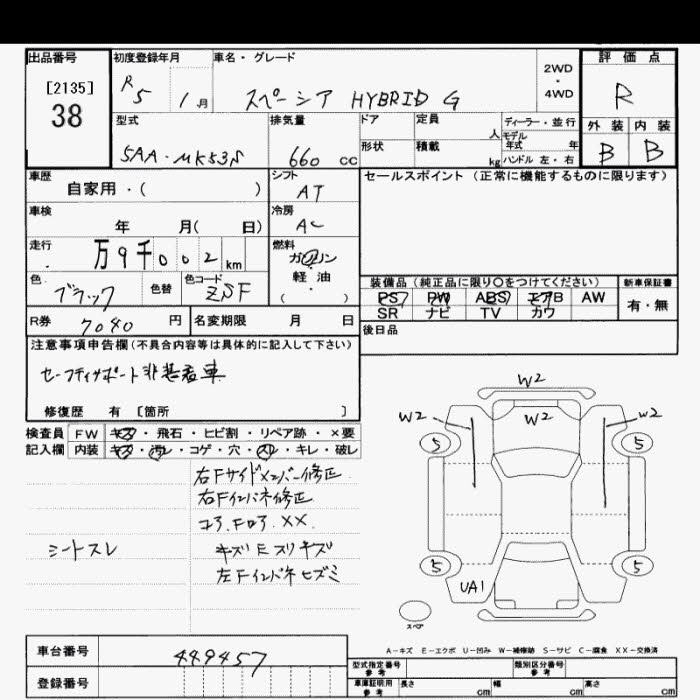 出品番号 初度登録年月 車名・グレード 評価点
[2135]
38
R5 1月 スペーシア HYBRID G
2WD
・
4WD
R
型式 排気量 ドア 定員 人 ディーラー・並行 外装 内装
モデル
年式 年
5AA-MK53S 660 cc 形状 積載 kg ハンドル 左・右 B B
車歴 シフト セールスポイント (正常に機能するものに限ります)
自家用・( ) AT
車検 冷房
年 月( 日) AC
走行 燃料
万9千002 km ガソリン
・
軽・油
( )
色 色替 色コード
ブラック ZSF
装備品 (純正品に限り○をつけてください) 新車保証書
PS PW ABS エアB AW 有・無
SR ナビ TV カワ
R券 7040 円 名変期限 月 日
後日品
注意事項申告欄(不具合内容等は具体的に記入して下さい)
セーフティサポート非装着車
修復歴 有 [箇所 ]
検査員 FW キズ・飛石・ヒビ割・リペア跡・×要
記入欄 内装 キズ・汚レ・コゲ・穴・スレ・キレ・破レ
右Fサイドメンバー修正
右Fインパネ修正
コア.Fロア.XX.
シートスレ
キズリEスリキズ
左Fインパネヒズミ
W2
W2 W2 W2
5 5
5 5
UA1
スペア
A-キズ E-エクボ U-凹み W-補修跡 S-サビ C-腐食 XX-交換済
車台番号 449457
登録番号
型式指定番号 類別区分番号
参考 参考
車庫証明用 長さ cm 幅 cm 高さ cm
参考